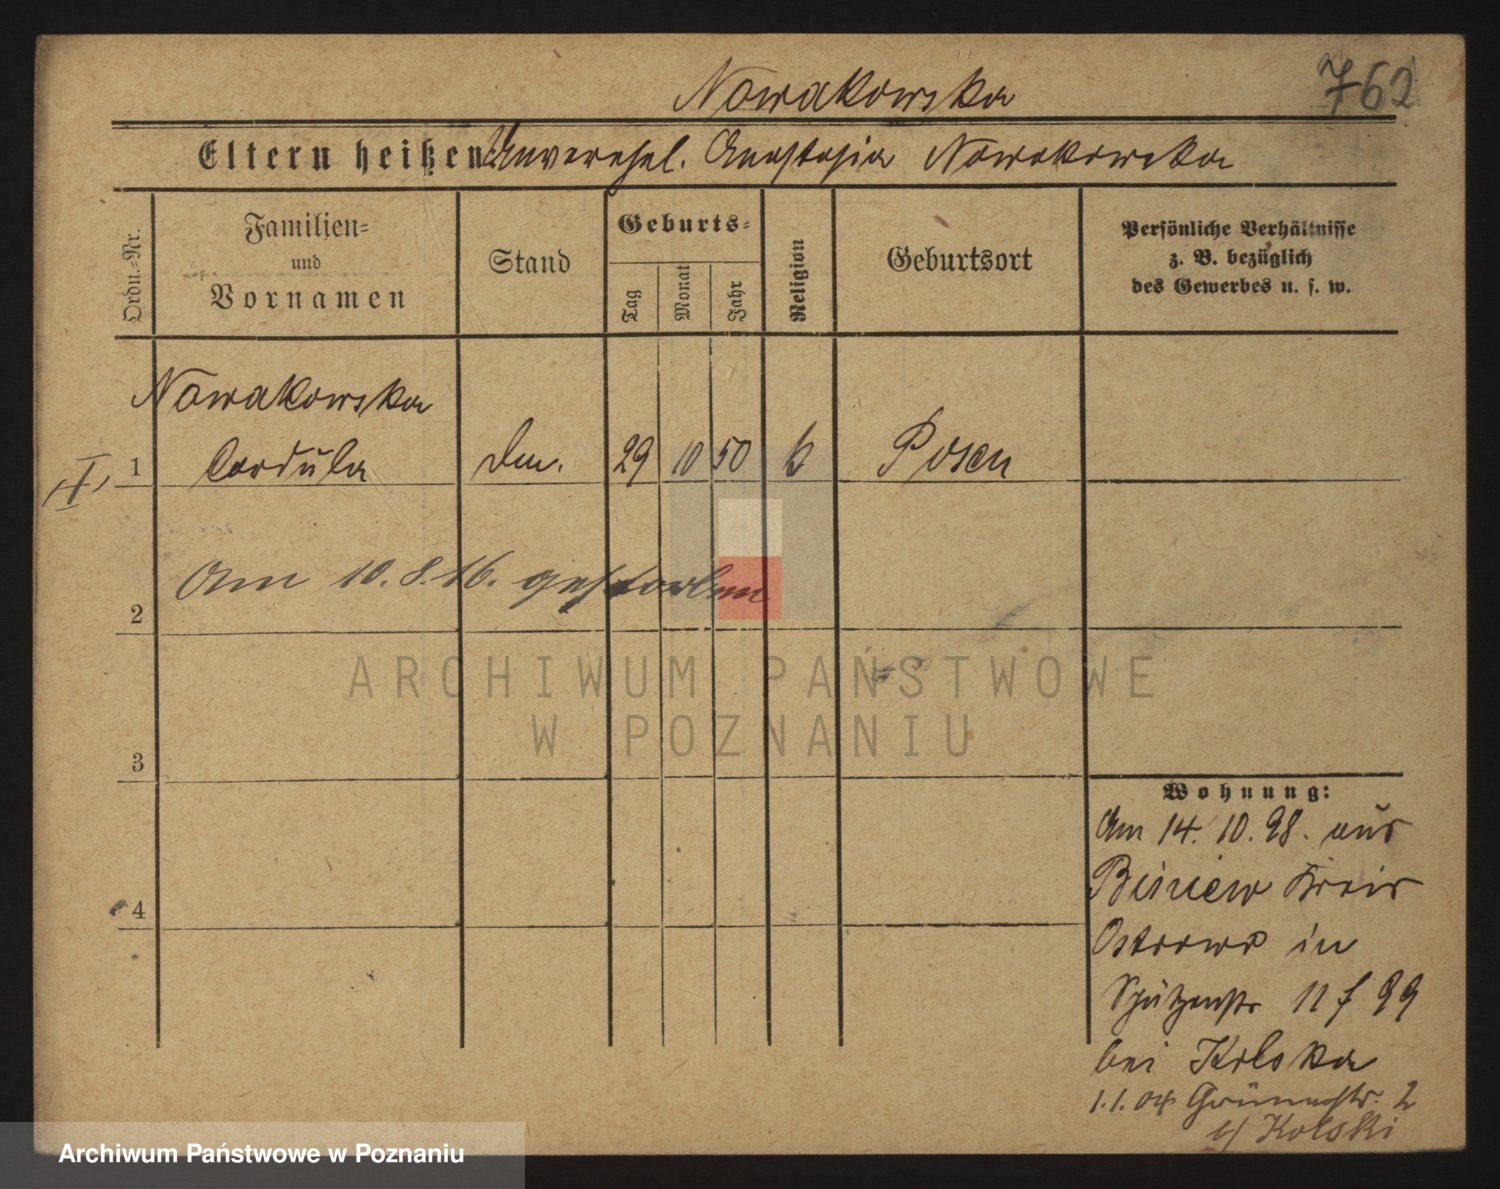 Nowakowska
762
Eltern heißen Unverehel. Anastasia Nowakowska
Ordn.-Nr.
Familien-
und
Vornamen
Stand
Geburts-
Tag
Monat
Jahr
Religion
Geburtsort
Persönliche Verhältnisse
z. B. bezüglich
des Gewerbes u. s. w.
Nowakowska
I 1 Cordula 29 10 50 k Posen
Am 10.8.16. gestorben
2
ARCHIWUM PAŃSTWOWE
W POZNANIU
3
Wohnung:
Am 14. 10. 98. aus
Biniew Kreis
4
Ostrowo in
Schützenstr 11
bei Kolska
1.1.04 Grünestr. 2
b/ Kolski
Archiwum Państwowe w Poznaniu